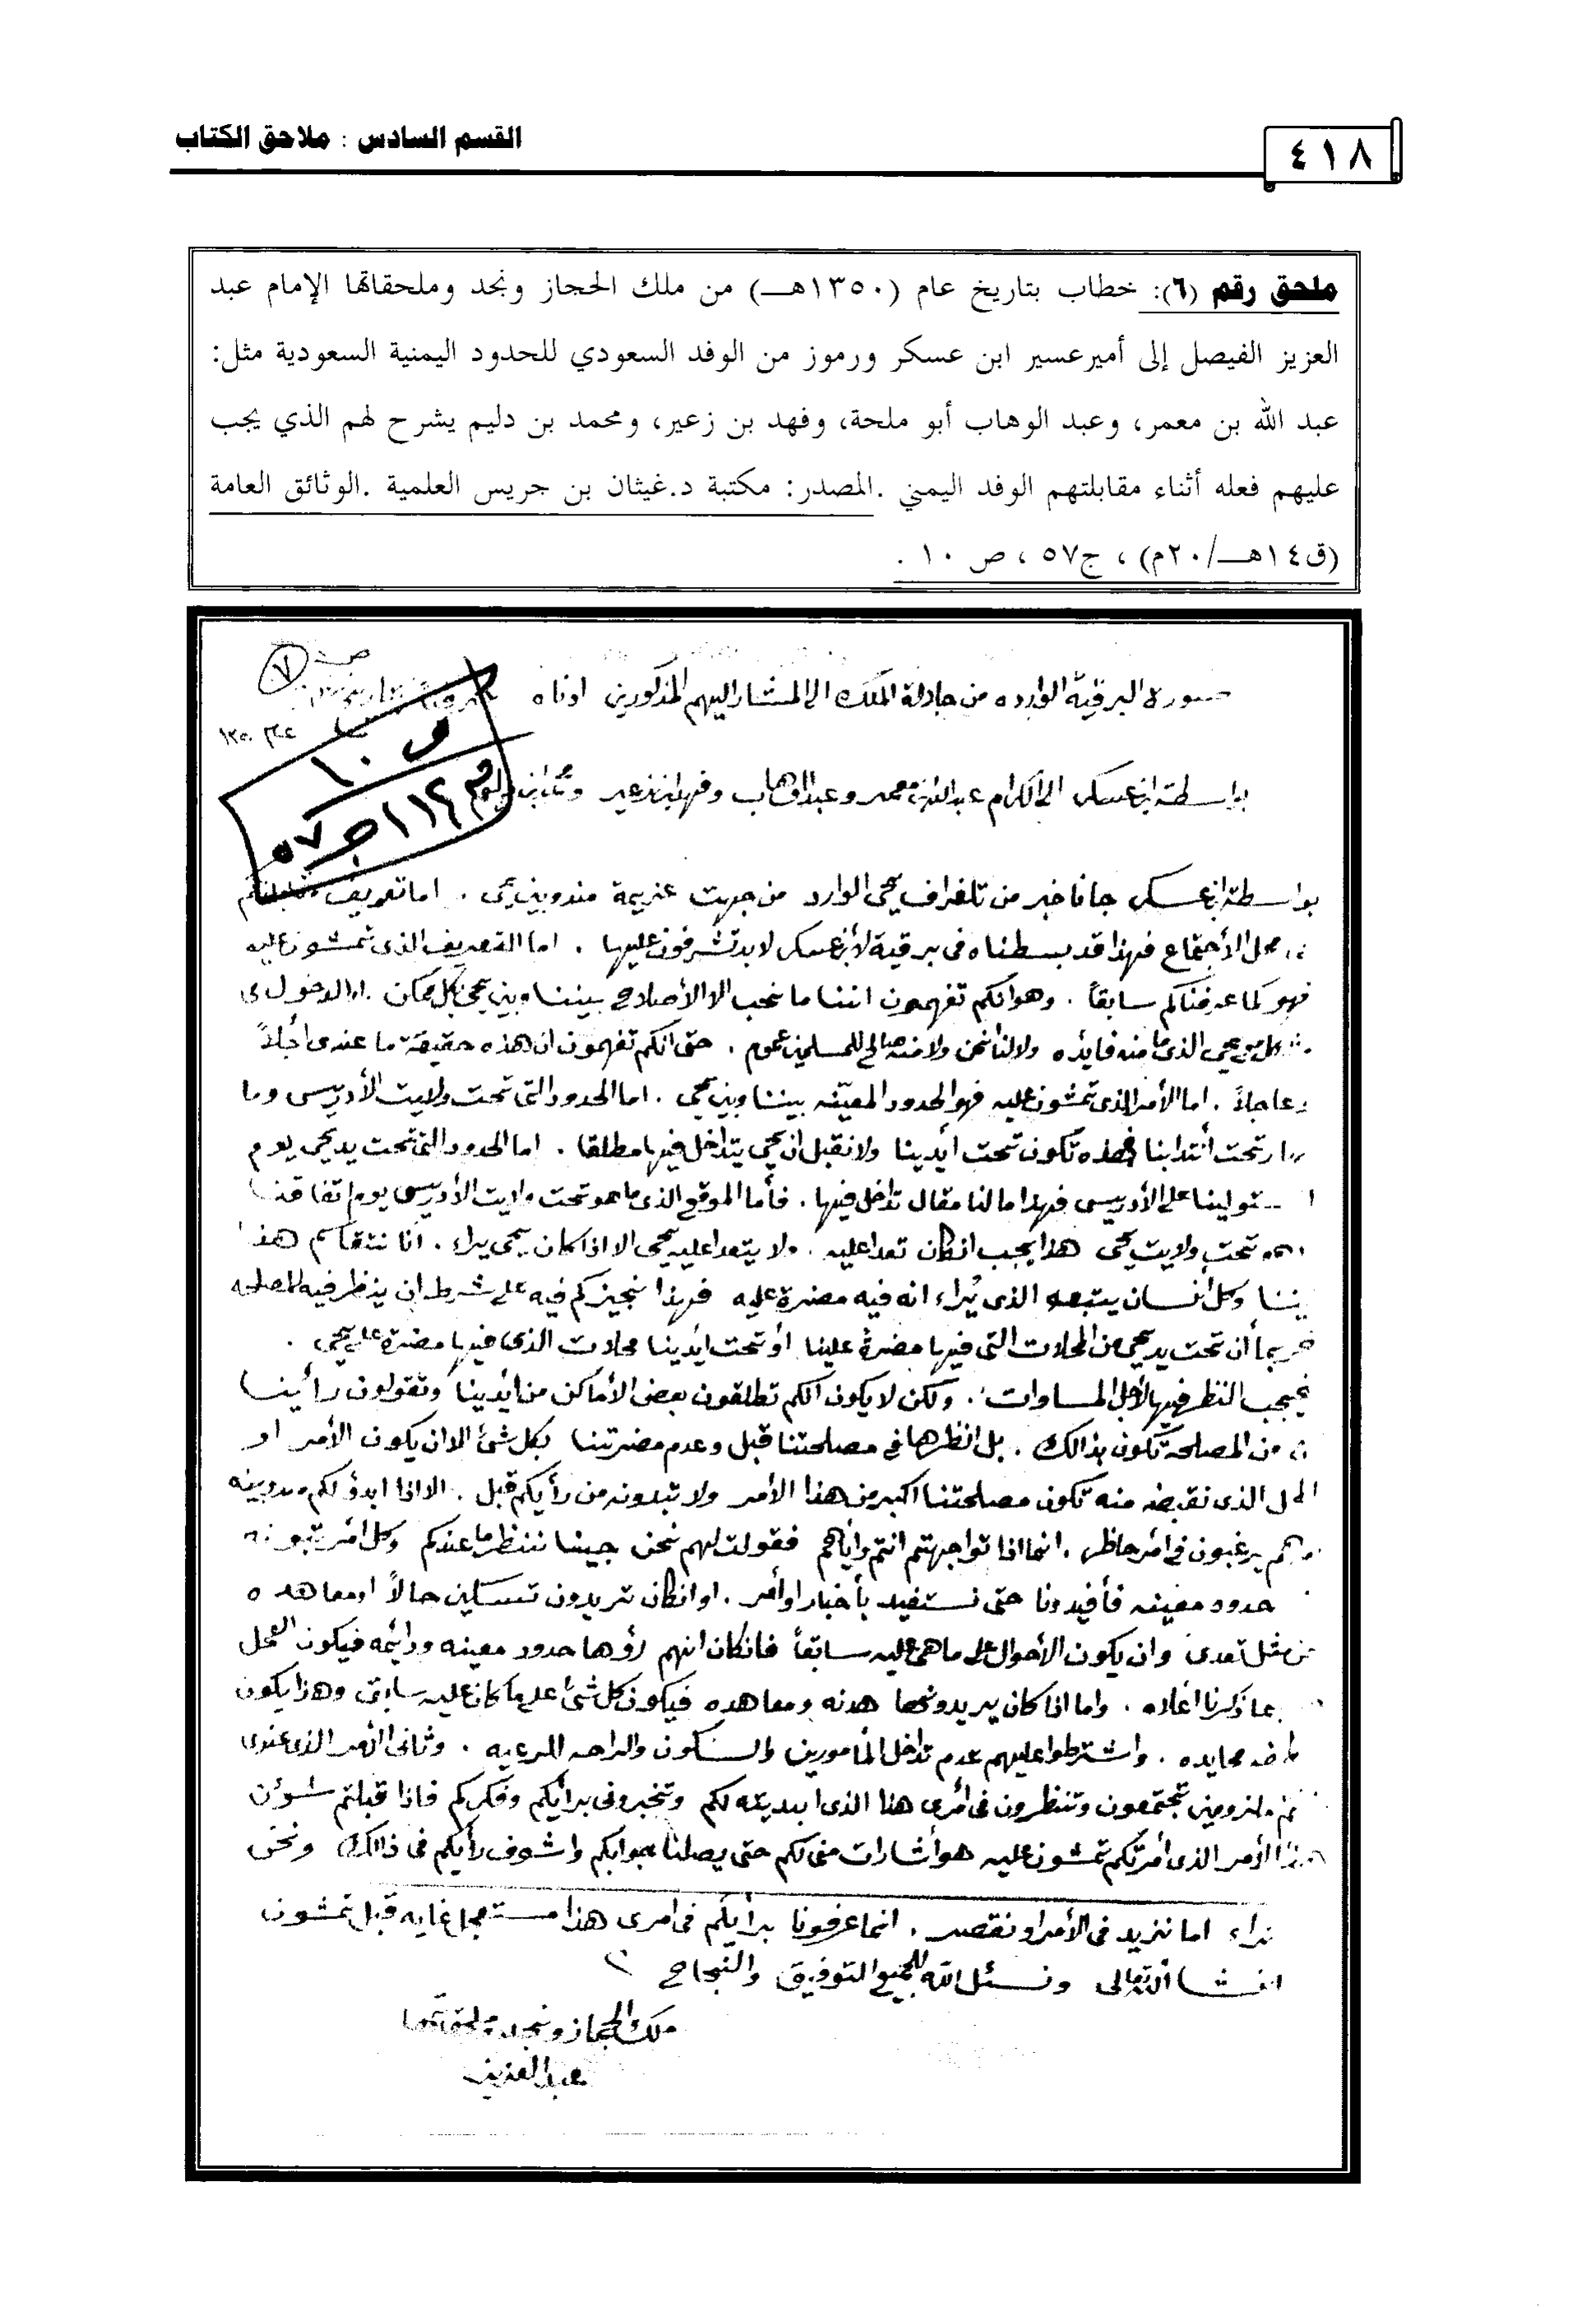 القسم السادس : ملاحق الكتاب
٤١٨
ملحق رقم (٦): خطاب بتاريخ عام (١٣٥٠هـ) من ملك الحجاز ونجد وملحقاتها الإمام عبد
العزيز الفيصل إلى أمير عسير ابن عسكر ورموز من الوفد السعودي للحدود اليمنية السعودية مثل:
عبد الله بن معمر، وعبد الوهاب أبو ملحة، وفهد بن زعير، ومحمد بن دليم يشرح لهم الذي يجب
عليهم فعله أثناء مقابلتهم الوفد اليمني .المصدر: مكتبة د.غيثان بن جريس العلمية .الوثائق العامة
(ق١٤هـ/٢٠م) ، ج٥٧ ، ص ١٠ .
٧
صورة البرقية الوارده من جلالة الملك الى المشار اليهم المذكورين ادناه
بواسطة ابن عسكر الى الكرام عبدالله بن معمر وعبدالوهاب وفهد ابن زعير ومحمد ابن دليم
بواسطة ابن عسكر جانا خبر من تلغراف يحيى الوارد من جهت عزيمة مندوبين يحيى . اما تعريف
محل الأجتماع فهذا قد بسطناه في برقية لأبن عسكر لابد تشرفون عليها . اما التعريف الذى تمشون عليه
فهو كما عرفناكم سابقاً . وهو انكم تفهمون اننا ما نحب الا الأصلاح بيننا وبين يحيى بكل ممكن .
مع يحيى الذى ما منه فايده ولا لنا نحن ولا منه صالح للمسلمين عموم . حتى انكم تفهمون ان هذه حقيقة ما عندى اجلاً
وعاجلاً . اما الأمر الذى تمشون عليه فهو الحدود المعينه بيننا وبين يحيى . اما الحدود التى تحت ولايت الأدريسى وما
تحت أنتدابنا فهذه تكون تحت ايدينا ولا نقبل ان يحيى يتداخل فيها مطلقا . اما الحدود التى تحت يد يحيى يوم
تولينا على الأدريسى فهذا ما لنا مقال تداخل فيها . فأما الموقع الذى ما هو تحت ولايت الأدريسى يوم اتفاقنا
تحت ولايت يحيى هذا يجب انكان تعدا عليه . ولا يتعدا عليه يحيى الا اذا كان يحيى يراء . انا نتقاسم هذا
بيننا وكل انسان يتبعه الذى يراء انه فيه مضرة عليه فهذا نجيزكم فيه على شرط ان ينظر فيه المصلحه
ربما أن تحت يد يحيى من المحلات التى فيها مضرة علينا او تحت ايدينا محلات الذى فيها مضرة على يحيى .
فيجب النظر فيها لأجل المساوات . ولكن لا يكون انكم تطلقون بعض الأماكن من ايدينا وتقولون رأينا
ان من المصلحة تكون بذالك . بل انظرها في مصلحتنا قبل وعدم مضرتنا بكل شئ الا ان يكون الأمر او
المحل الذى نقبضه منه تكون مصلحتنا اكبر من هذا الأمر ولا تبدونه من رأيكم قبل . الا اذا ابدو لكم مندوبينه
يرغبون في امر حاظر . انما اذا تواجهتم انتم واياهم فقولت لهم نحن جينا ننظر ما عندكم وكل امر
حدود معينه فأفيدونا حتى نستفيد بأخبار اوأمر . او انكان تريدون تسكين حالاً او معاهده
تعدى وان يكون الأحوال على ما هى عليه سابقاً فانكان انهم رؤها حدود معينه ودائمه فيكون العمل
بما ذكرنا اعلاه . واما اذا كان يريدونها هدنه ومعاهده فيكون كل شئ على ما كان عليه سابق وهذا يكون
محايده . واشترطوا عليهم عدم تداخل المأمورين والسكون والراحه للرعيه . وثانى الأمر الذى عندى
ملزومين تجتمعون وتنظرون في امرى هذا الذى ابديته لكم وتخبرونى برأيكم وفكركم فاذا قبلتم
الأمر الذى أمرتكم تمشون عليه هو أشارات منى لكم حتى يصلنا جوابكم واشوف رأيكم في ذالك ونحن
نراء اما نزيد في الأمر او نقصر . انما عرفونا برأيكم في امرى هذا مستعجل غايه قبل تمشون
انشاء الله تعالى ونسئل الله للجميع التوفيق والنجاح
ملك الحجاز ونجد وملحقاتها
عبدالعزيز